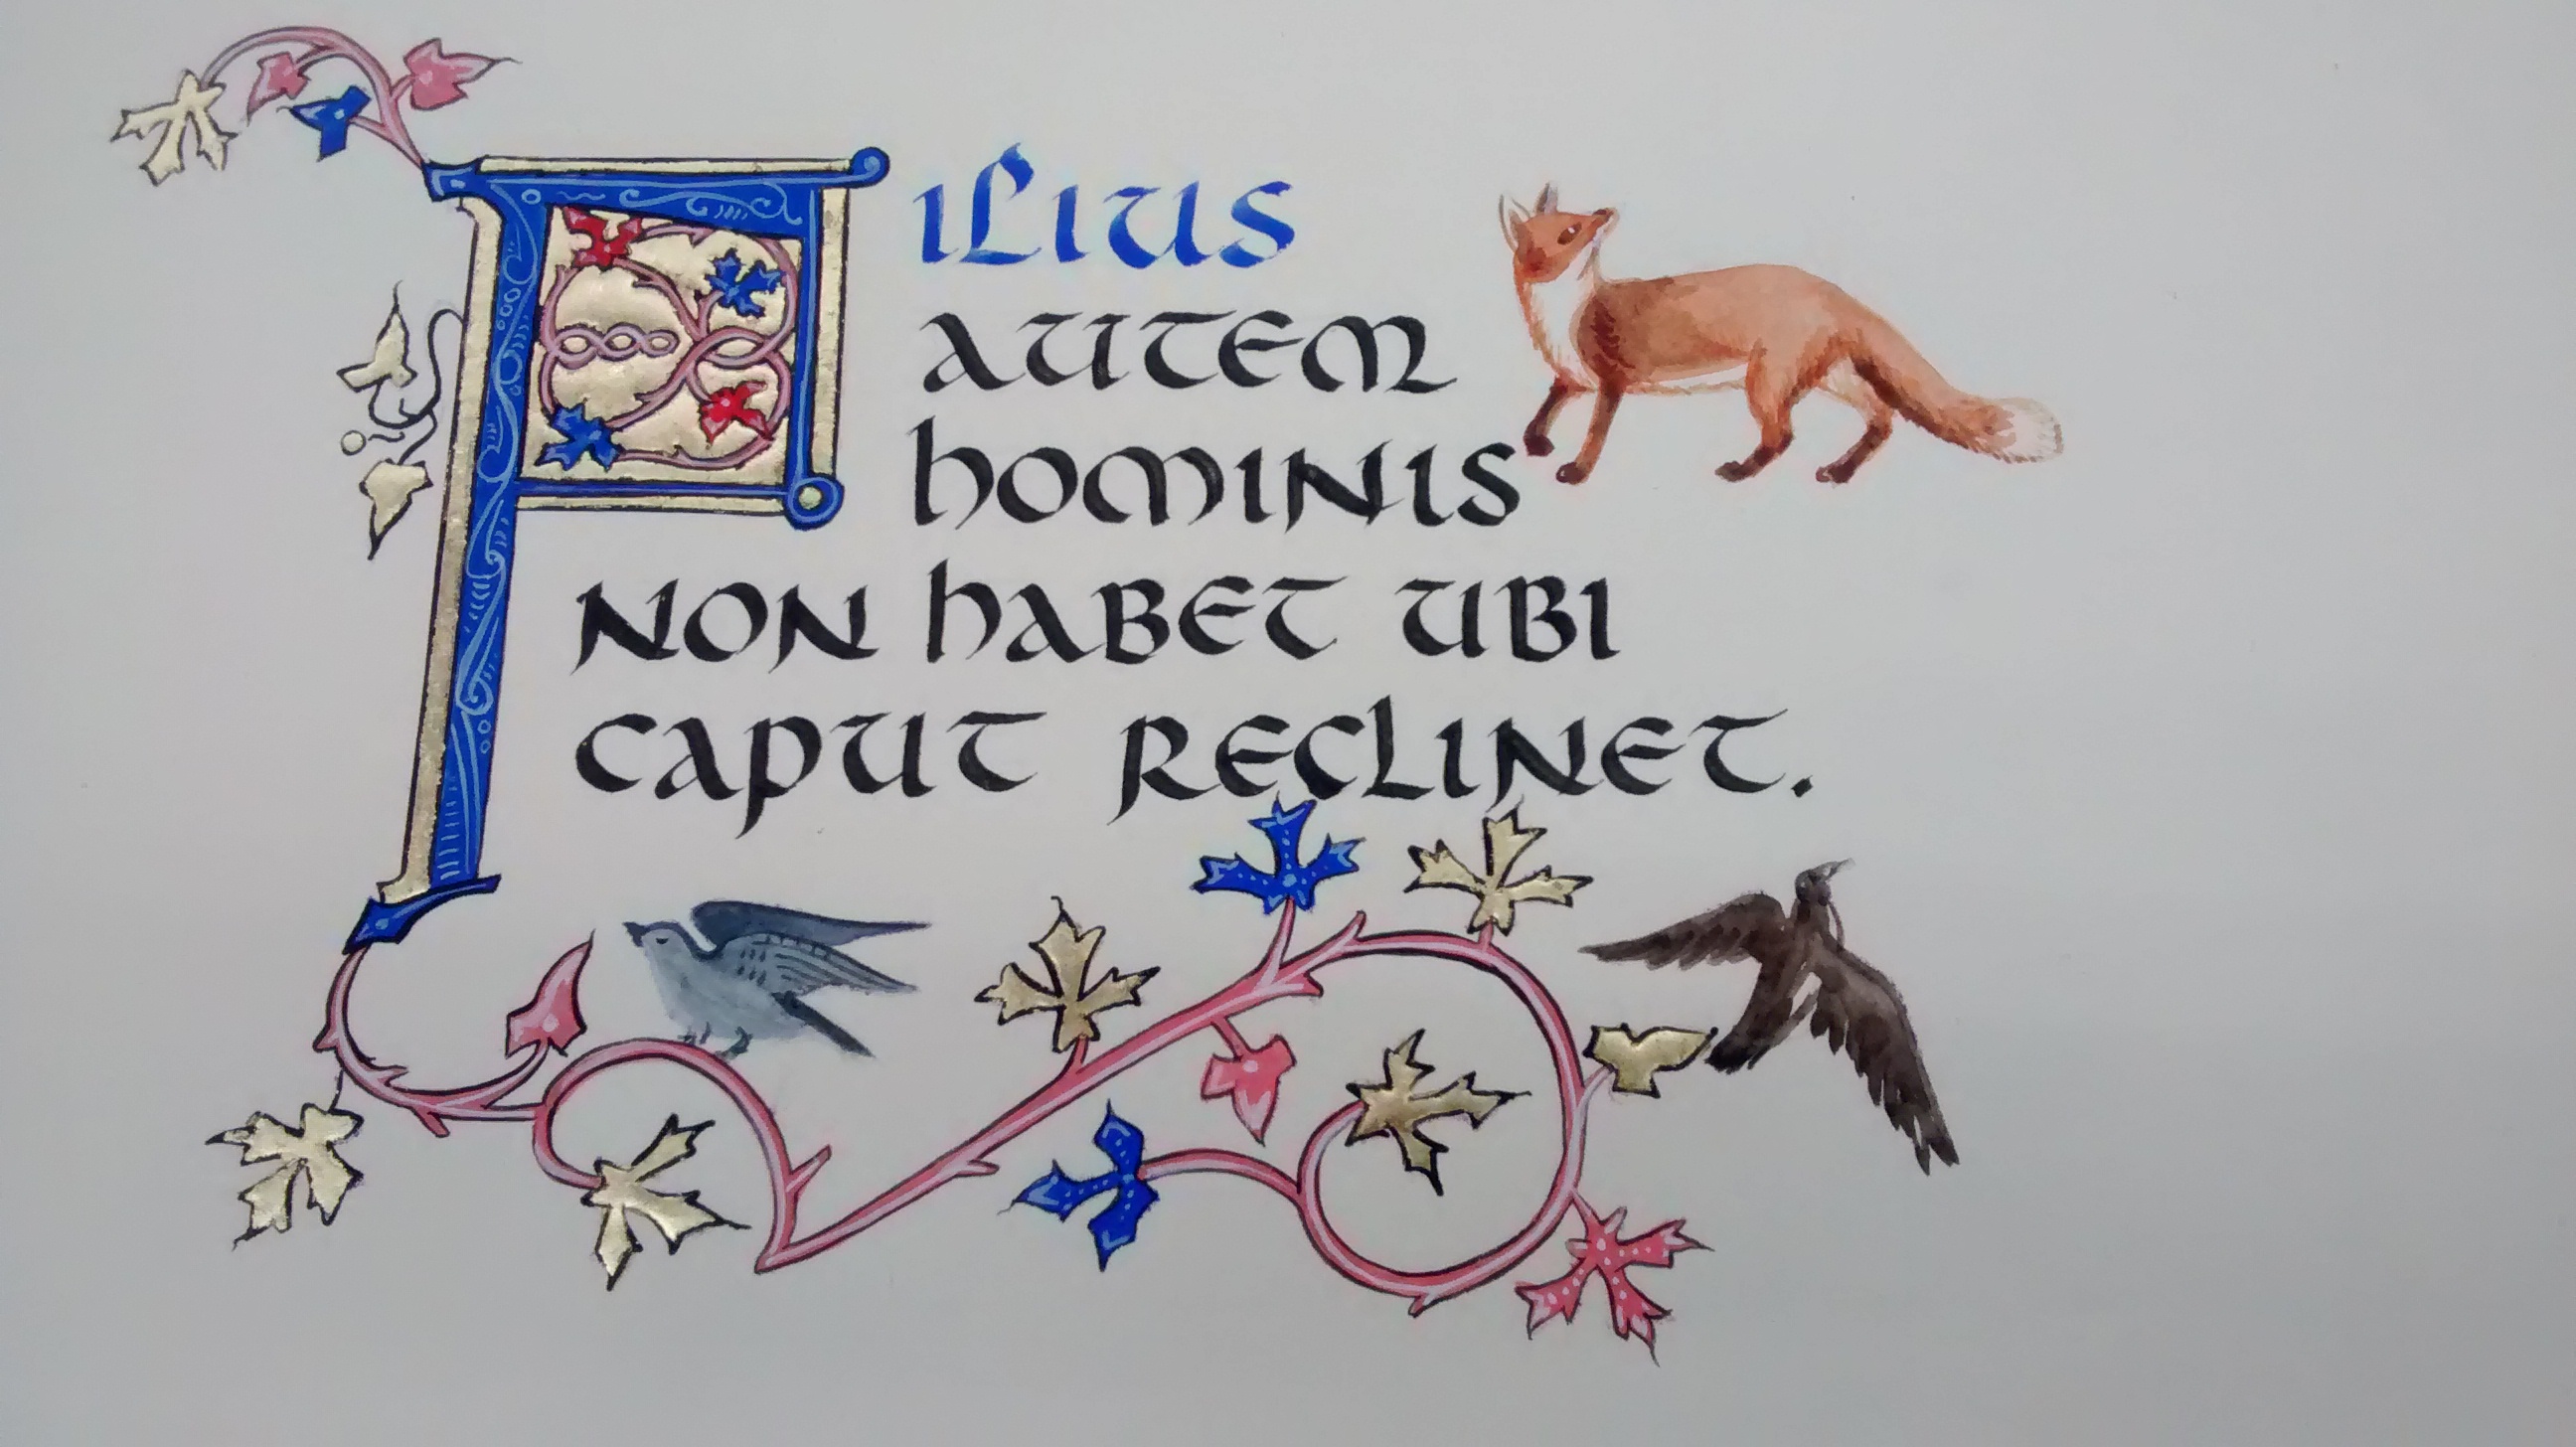 Filius
autem
hominis
non habet ubi
caput reclinet.